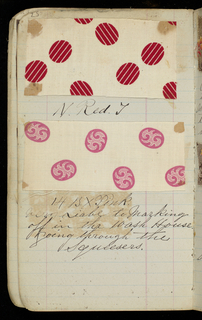 N. Red. T
14 B X Pink
very Liable to Marking
off in the Wash House
& Going through the
Squeesers.